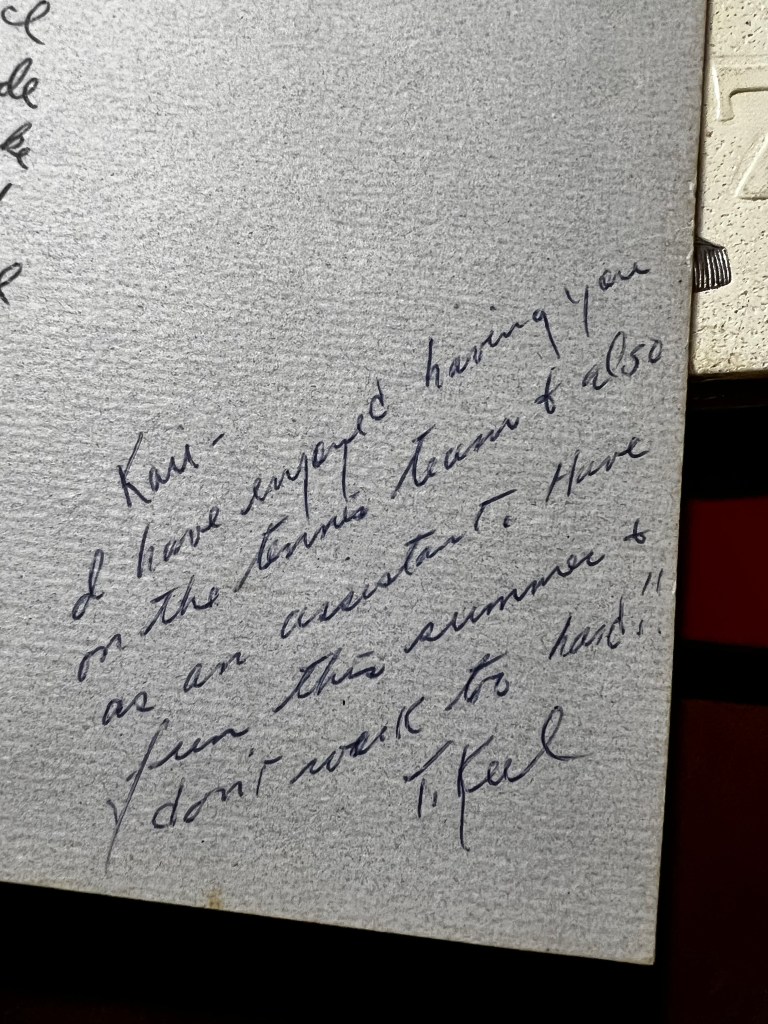 ce
de
ke
Kari-
I have enjoyed having you
on the tennis team & also
as an assistant. Have
fun this summer &
don't work too hard!!
T. Keel